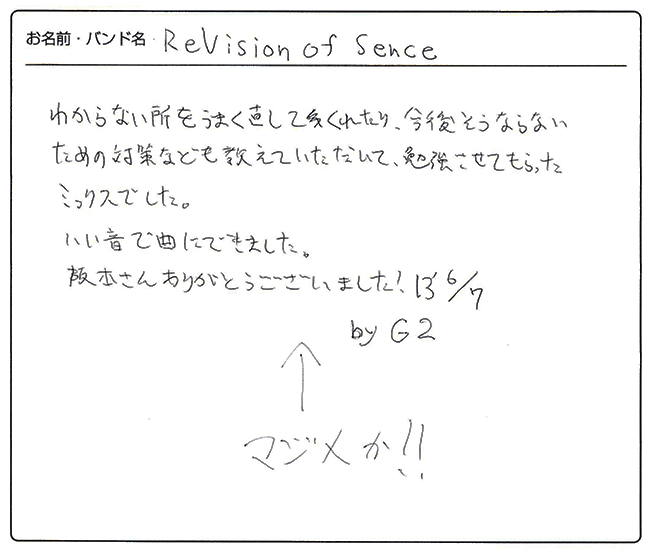 お名前・バンド名 ReVision of Sence
わからない所をうまく直してくれたり、今後そうならない
ための対策なども教えていただいて、勉強させてもらった
ミックスでした。
いい音で曲にできました。
阪本さんありがとうございました! 13' 6/7
by G2
↑
マジメか!!